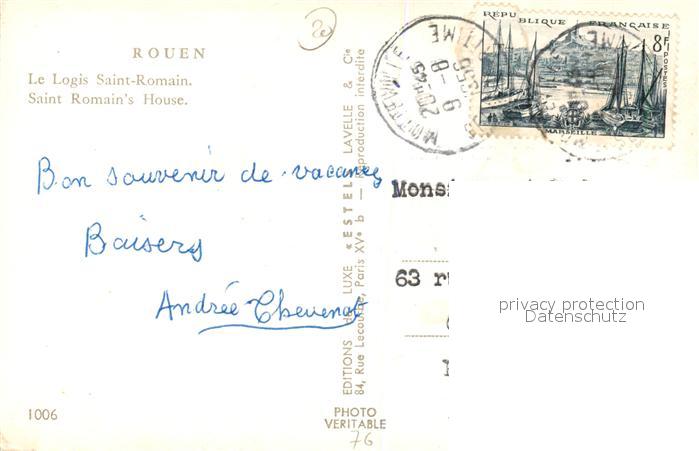 ROUEN
Le Logis Saint-Romain.
Saint Romain's House.
Bon souvenir de vacances
Baisers
Andrée Thevenot
1006
EDITIONS DE LUXE « ESTEL » LAVELLE & Cie
84, Rue Lecourbe, Paris XVe b — Reproduction interdite
PHOTO
VERITABLE
76
REPUBLIQUE FRANÇAISE
8F
POSTES
MARSEILLE
20H45
9-8
1956
MARITIME
Mons
63 r
privacy protection
Datenschutz